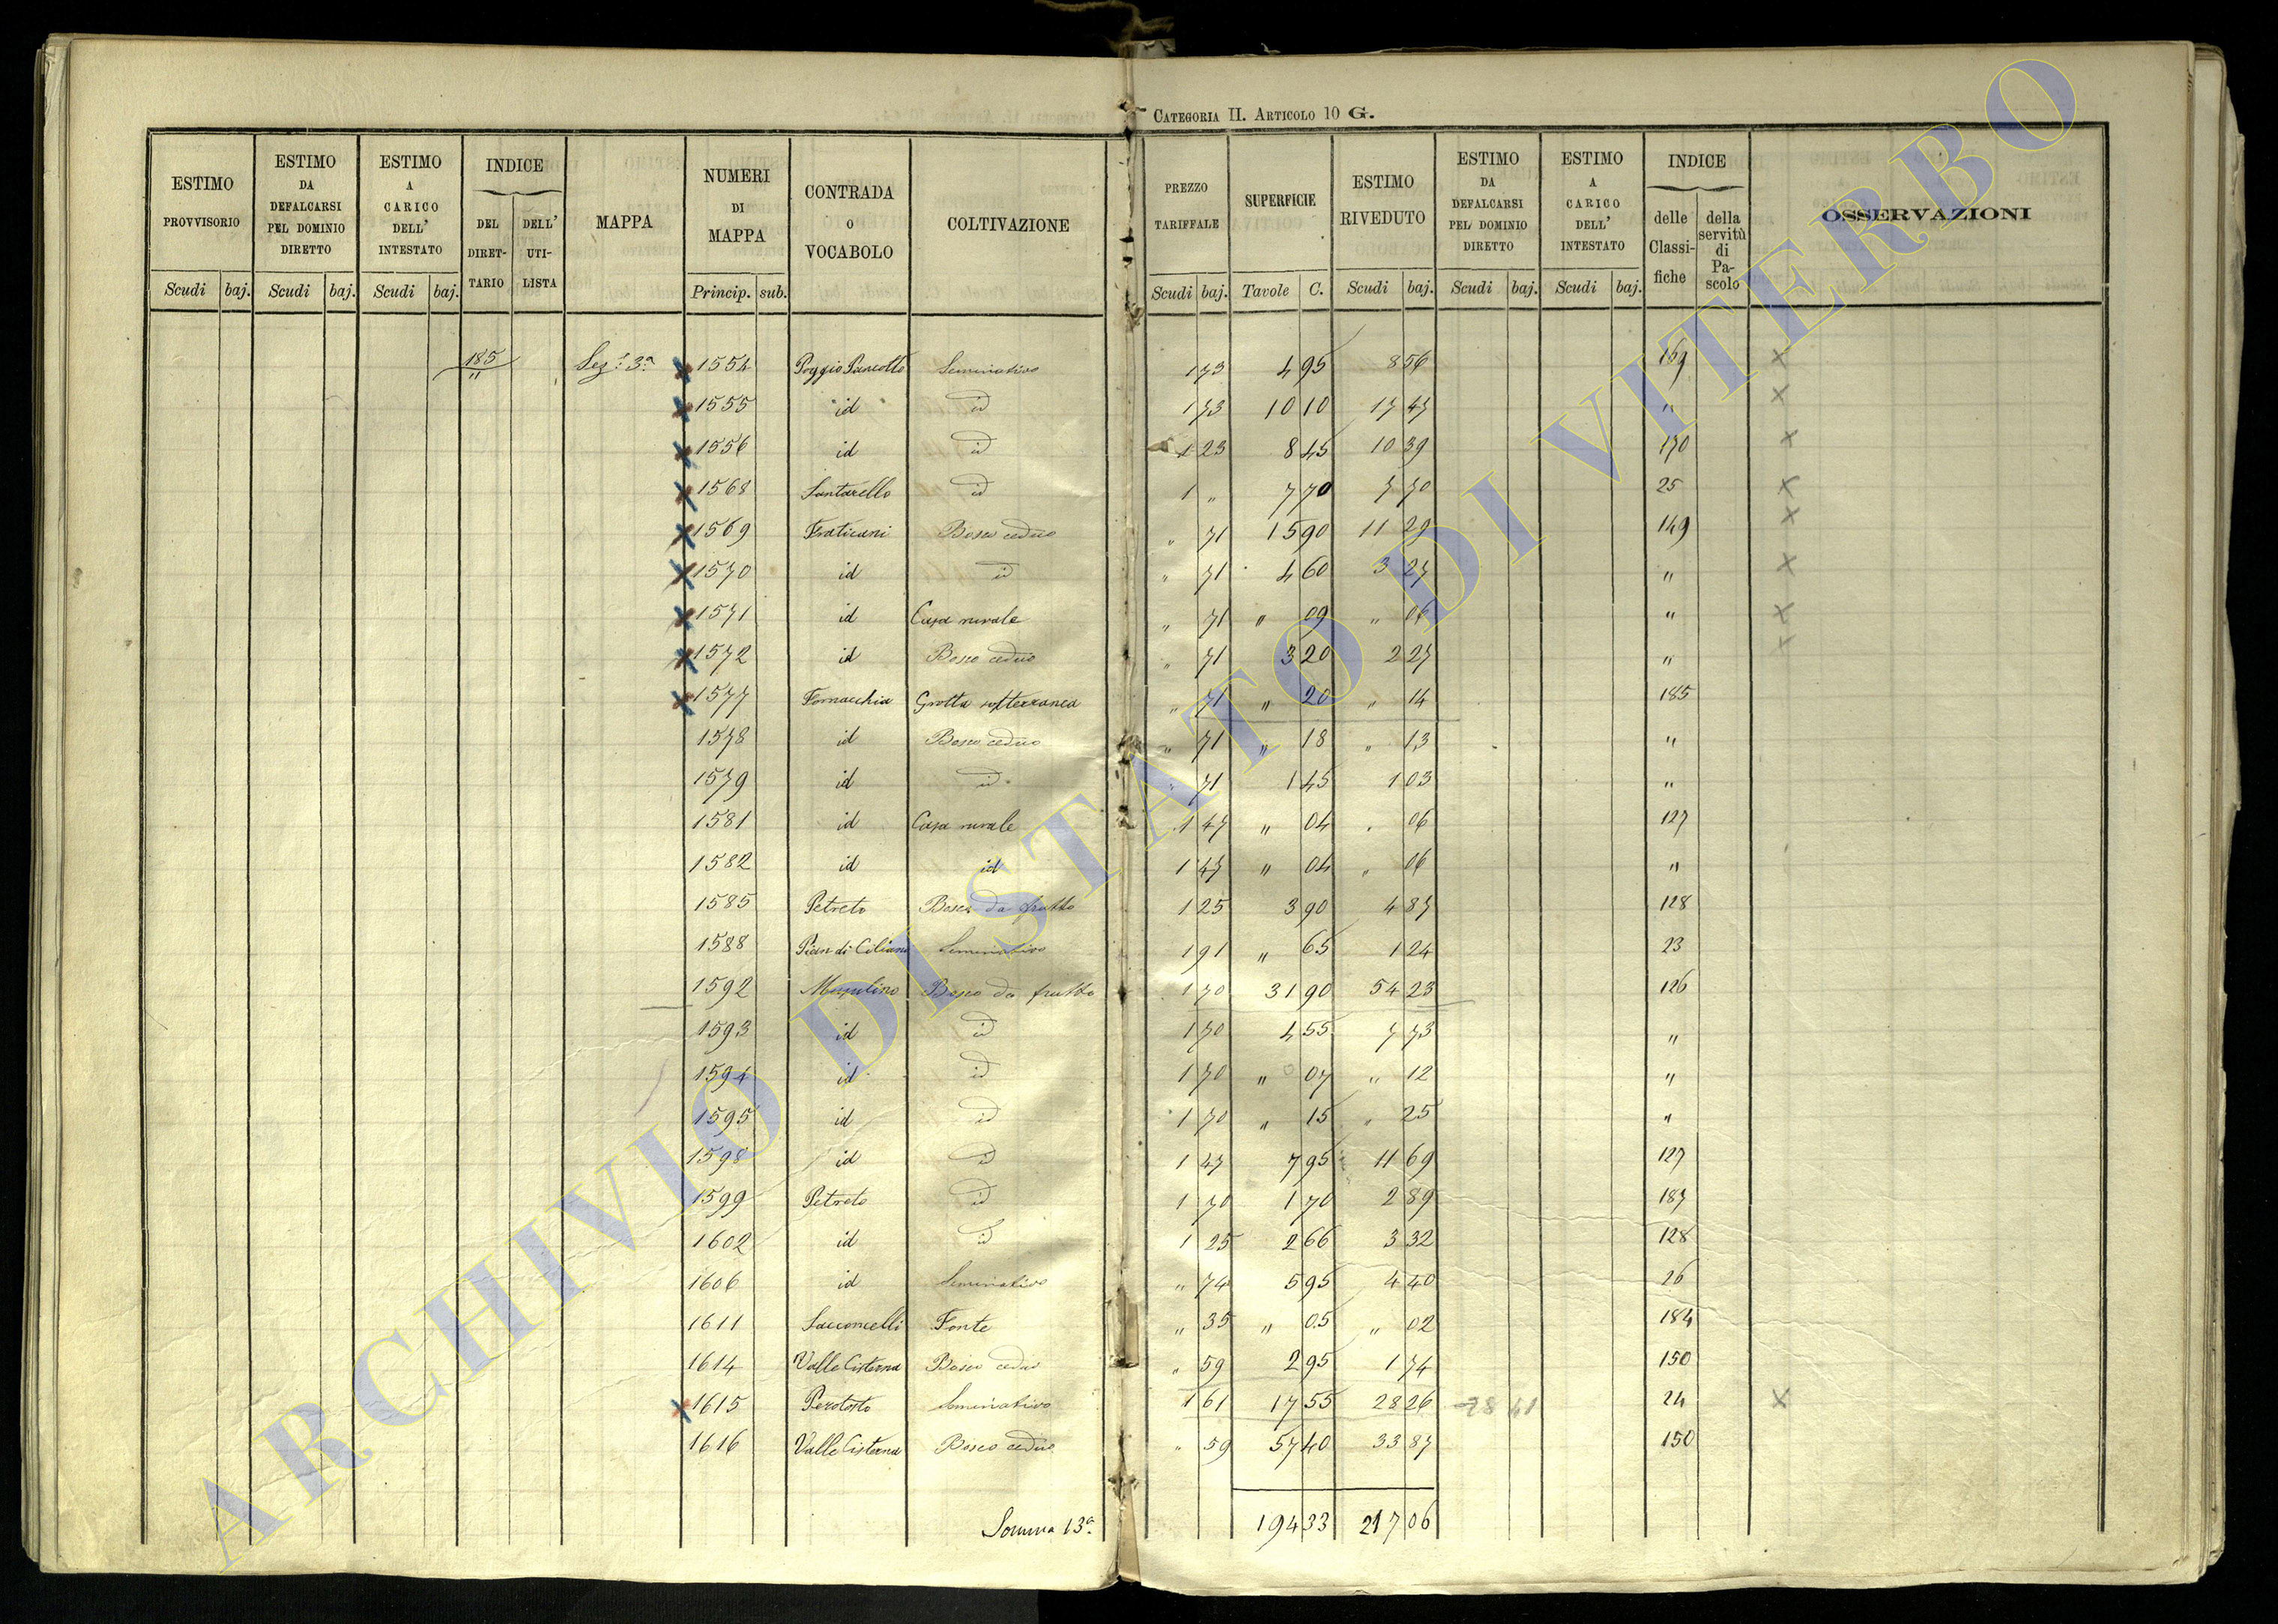 CATEGORIA II. ARTICOLO 10 G.
ESTIMO PROVVISORIO Scudi baj. ESTIMO DA DEFALCARSI PEL DOMINIO DIRETTO Scudi baj. ESTIMO A CARICO DELL' INTESTATO Scudi baj. INDICE DEL DIRET-TARIO DELL' UTI-LISTA MAPPA NUMERI DI MAPPA Princip. sub. CONTRADA O VOCABOLO COLTIVAZIONE PREZZO TARIFFALE Scudi baj. SUPERFICIE Tavole C. ESTIMO RIVEDUTO Scudi baj. ESTIMO DA DEFALCARSI PEL DOMINIO DIRETTO Scudi baj. ESTIMO A CARICO DELL' INTESTATO Scudi baj. INDICE delle Classi-fiche della servitù di Pa-scolo OSSERVAZIONI
185 " Sez.e 3a x 1554 Poggio Pancotto Seminativo 1 73 4 95 8 56 169 x
x 1555 id id 1 73 10 10 17 47 " x
x 1556 id id 1 23 8 45 10 39 170 x
x 1568 Santarello id 1 " 7 70 7 70 25 x
x 1569 Fraticani Bosco ceduo " 71 15 90 11 29 149 x
x 1570 id id " 71 4 60 3 27 " x
x 1571 id Casa rurale " 71 " 09 " 06 " x
x 1572 id Bosco ceduo " 71 3 20 2 27 " x
x 1577 Fornacchia Grotta sotterranea " 71 " 20 " 14 185
1578 id Bosco ceduo " 71 " 18 " 13 "
1579 id id " 71 1 45 1 03 "
1581 id Casa rurale 1 47 " 04 " 06 127
1582 id id 1 47 " 04 " 06 "
1585 Petreto Bosco da frutto 1 25 3 90 4 87 128
1588 Pian di Ciliano Seminativo 1 91 " 65 1 24 23
1592 Bosco da frutto 1 70 31 90 54 23 126
1593 id id 1 70 4 55 7 73 "
1594 id id 1 70 " 07 " 12 "
1595 id id 1 70 " 15 " 25 "
1598 id id 1 47 7 95 11 69 127
1599 Petreto id 1 70 1 70 2 89 187
1602 id id 1 25 2 66 3 32 128
1606 id Seminativo " 74 5 95 4 40 26
1611 Sacconcelli Fonte " 35 " 05 " 02 184
1614 Valle Cisterna Bosco ceduo " 59 2 95 1 74 150
x 1615 Perotosto Seminativo 1 61 17 55 28 26 24 x
1616 Valle Cisterna Bosco ceduo " 59 57 40 33 87 150
Somma 13a 194 33 217 06
ARCHIVIO DI STATO DI VITERBO